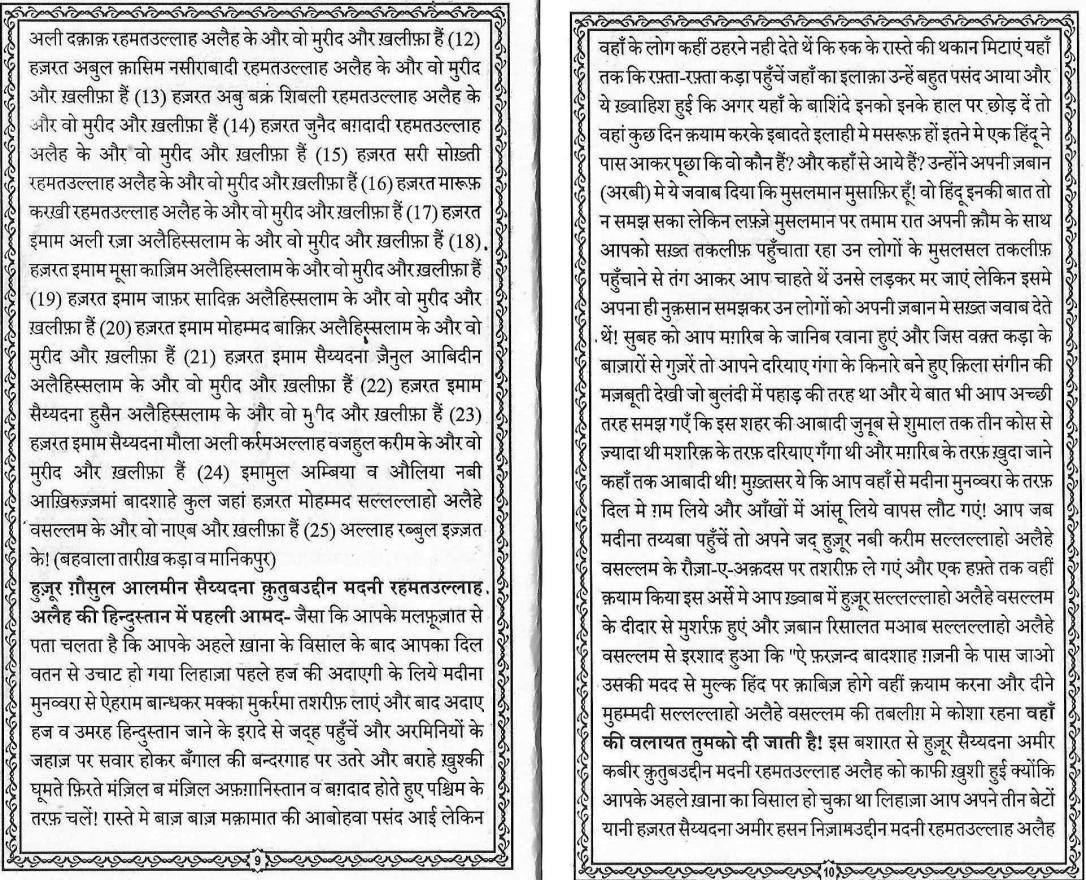 अली दक़ाक़ रहमतउल्लाह अलैह के और वो मुरीद और ख़लीफ़ा हैं (12)
हज़रत अबुल क़ासिम नसीराबादी रहमतउल्लाह अलैह के और वो मुरीद
और ख़लीफ़ा हैं (13) हज़रत अबु बक्र शिबली रहमतउल्लाह अलैह के
और वो मुरीद और ख़लीफ़ा हैं (14) हज़रत जुनैद बग़दादी रहमतउल्लाह
अलैह के और वो मुरीद और ख़लीफ़ा हैं (15) हज़रत सरी सोख़्ती
रहमतउल्लाह अलैह के और वो मुरीद और ख़लीफ़ा हैं (16) हज़रत मारूफ़
करख़ी रहमतउल्लाह अलैह के और वो मुरीद और ख़लीफ़ा हैं (17) हज़रत
इमाम अली रज़ा अलैहिस्सलाम के और वो मुरीद और ख़लीफ़ा हैं (18)
हज़रत इमाम मूसा काज़िम अलैहिस्सलाम के और वो मुरीद और ख़लीफ़ा हैं
(19) हज़रत इमाम जाफ़र सादिक़ अलैहिस्सलाम के और वो मुरीद और
ख़लीफ़ा हैं (20) हज़रत इमाम मोहम्मद बाक़िर अलैहिस्सलाम के और वो
मुरीद और ख़लीफ़ा हैं (21) हज़रत इमाम सैय्यदना ज़ैनुल आबिदीन
अलैहिस्सलाम के और वो मुरीद और ख़लीफ़ा हैं (22) हज़रत इमाम
सैय्यदना हुसैन अलैहिस्सलाम के और वो मुरीद और ख़लीफ़ा हैं (23)
हज़रत इमाम सैय्यदना मौला अली कर्रमअल्लाह वजहुल करीम के और वो
मुरीद और ख़लीफ़ा हैं (24) इमामुल अम्बिया व औलिया नबी
आख़िरुज़्ज़मां बादशाहे कुल जहां हज़रत मोहम्मद सल्लल्लाहो अलैहे
वसल्लम के और वो नाएब और ख़लीफ़ा हैं (25) अल्लाह रब्बुल इज़्ज़त
के! (बहवाला तारीख़ कड़ा व मानिकपुर)
हुज़ूर ग़ौसुल आलमीन सैय्यदना क़ुतुबउद्दीन मदनी रहमतउल्लाह
अलैह की हिन्दुस्तान में पहली आमद- जैसा कि आपके मलफ़ूज़ात से
पता चलता है कि आपके अहले ख़ाना के विसाल के बाद आपका दिल
वतन से उचाट हो गया लिहाज़ा पहले हज की अदाएगी के लिये मदीना
मुनव्वरा से ऐहराम बान्धकर मक्का मुकर्रमा तशरीफ़ लाएं और बाद अदाए
हज व उमरह हिन्दुस्तान जाने के इरादे से जद्ह पहुँचें और अरमिनियों के
जहाज़ पर सवार होकर बँगाल की बन्दरगाह पर उतरे और बराहे ख़ुश्की
घूमते फ़िरते मंज़िल ब मंज़िल अफ़ग़ानिस्तान व बग़दाद होते हुए पश्चिम के
तरफ़ चलें! रास्ते मे बाज़ बाज़ मक़ामात की आबोहवा पसंद आई लेकिन
9
वहाँ के लोग कहीं ठहरने नही देते थें कि रुक के रास्ते की थकान मिटाएं यहाँ
तक कि रफ़्ता-रफ़्ता कड़ा पहुँचें जहाँ का इलाक़ा उन्हें बहुत पसंद आया और
ये ख़्वाहिश हुई कि अगर यहाँ के बाशिंदे इनको इनके हाल पर छोड़ दें तो
वहां कुछ दिन क़याम करके इबादते इलाही मे मसरूफ़ हों इतने मे एक हिंदू ने
पास आकर पूछा कि वो कौन हैं? और कहाँ से आये हैं? उन्होंने अपनी ज़बान
(अरबी) मे ये जवाब दिया कि मुसलमान मुसाफ़िर हूँ! वो हिंदू इनकी बात तो
न समझ सका लेकिन लफ़्ज़े मुसलमान पर तमाम रात अपनी क़ौम के साथ
आपको सख़्त तकलीफ़ पहुँचाता रहा उन लोगों के मुसलसल तकलीफ़
पहुँचाने से तंग आकर आप चाहते थें उनसे लड़कर मर जाएं लेकिन इसमे
अपना ही नुक़सान समझकर उन लोगों को अपनी ज़बान मे सख़्त जवाब देते
थें! सुबह को आप मग़रिब के जानिब रवाना हुएं और जिस वक़्त कड़ा के
बाज़ारों से गुज़रें तो आपने दरियाए गंगा के किनारे बने हुए क़िला संगीन की
मज़बूती देखी जो बुलंदी में पहाड़ की तरह था और ये बात भी आप अच्छी
तरह समझ गएँ कि इस शहर की आबादी जुनूब से शुमाल तक तीन कोस से
ज़्यादा थी मशरिक़ के तरफ़ दरियाए गँगा थी और मग़रिब के तरफ़ ख़ुदा जाने
कहाँ तक आबादी थी! मुख़्तसर ये कि आप वहाँ से मदीना मुनव्वरा के तरफ़
दिल मे ग़म लिये और आँखों में आंसू लिये वापस लौट गएं! आप जब
मदीना तय्यबा पहुँचें तो अपने जद् हुज़ूर नबी करीम सल्लल्लाहो अलैहे
वसल्लम के रौज़ा-ए-अक़दस पर तशरीफ़ ले गएं और एक हफ़्ते तक वहीं
क़याम किया इस अर्से मे आप ख़्वाब में हुज़ूर सल्लल्लाहो अलैहे वसल्लम
के दीदार से मुशर्रफ़ हुएं और ज़बान रिसालत मआब सल्लल्लाहो अलैहे
वसल्लम से इरशाद हुआ कि "ऐ फ़रज़न्द बादशाह ग़ज़नी के पास जाओ
उसकी मदद से मुल्क हिंद पर क़ाबिज़ होगे वहीं क़याम करना और दीने
मुहम्मदी सल्लल्लाहो अलैहे वसल्लम की तबलीग़ मे कोशा रहना वहाँ
की वलायत तुमको दी जाती है! इस बशारत से हुज़ूर सैय्यदना अमीर
कबीर क़ुतुबउद्दीन मदनी रहमतउल्लाह अलैह को काफी ख़ुशी हुई क्योंकि
आपके अहले ख़ाना का विसाल हो चुका था लिहाज़ा आप अपने तीन बेटों
यानी हज़रत सैय्यदना अमीर हसन निज़ामउद्दीन मदनी रहमतउल्लाह अलैह
10